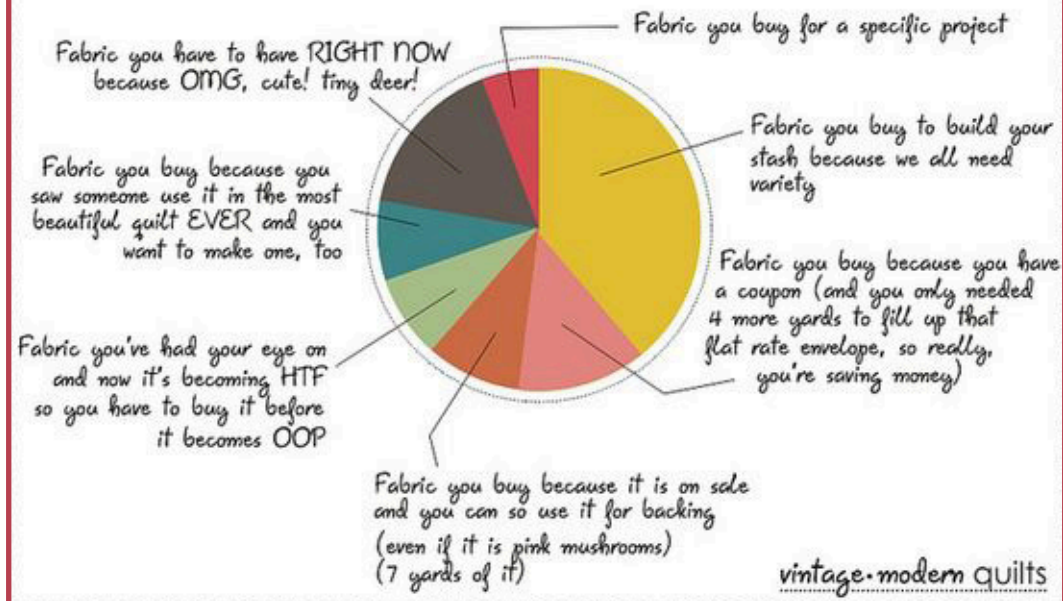 Fabric you buy for a specific project
Fabric you have to have RIGHT NOW
because OMG, cute! tiny deer!
Fabric you buy to build your
stash because we all need
variety
Fabric you buy because you
saw someone use it in the most
beautiful quilt EVER and you
want to make one, too
Fabric you buy because you have
a coupon (and you only needed
4 more yards to fill up that
flat rate envelope, so really,
you're saving money)
Fabric you've had your eye on
and now it's becoming HTF
so you have to buy it before
it becomes OOP
Fabric you buy because it is on sale
and you can so use it for backing
(even if it is pink mushrooms)
(7 yards of it)
vintage·modern quilts